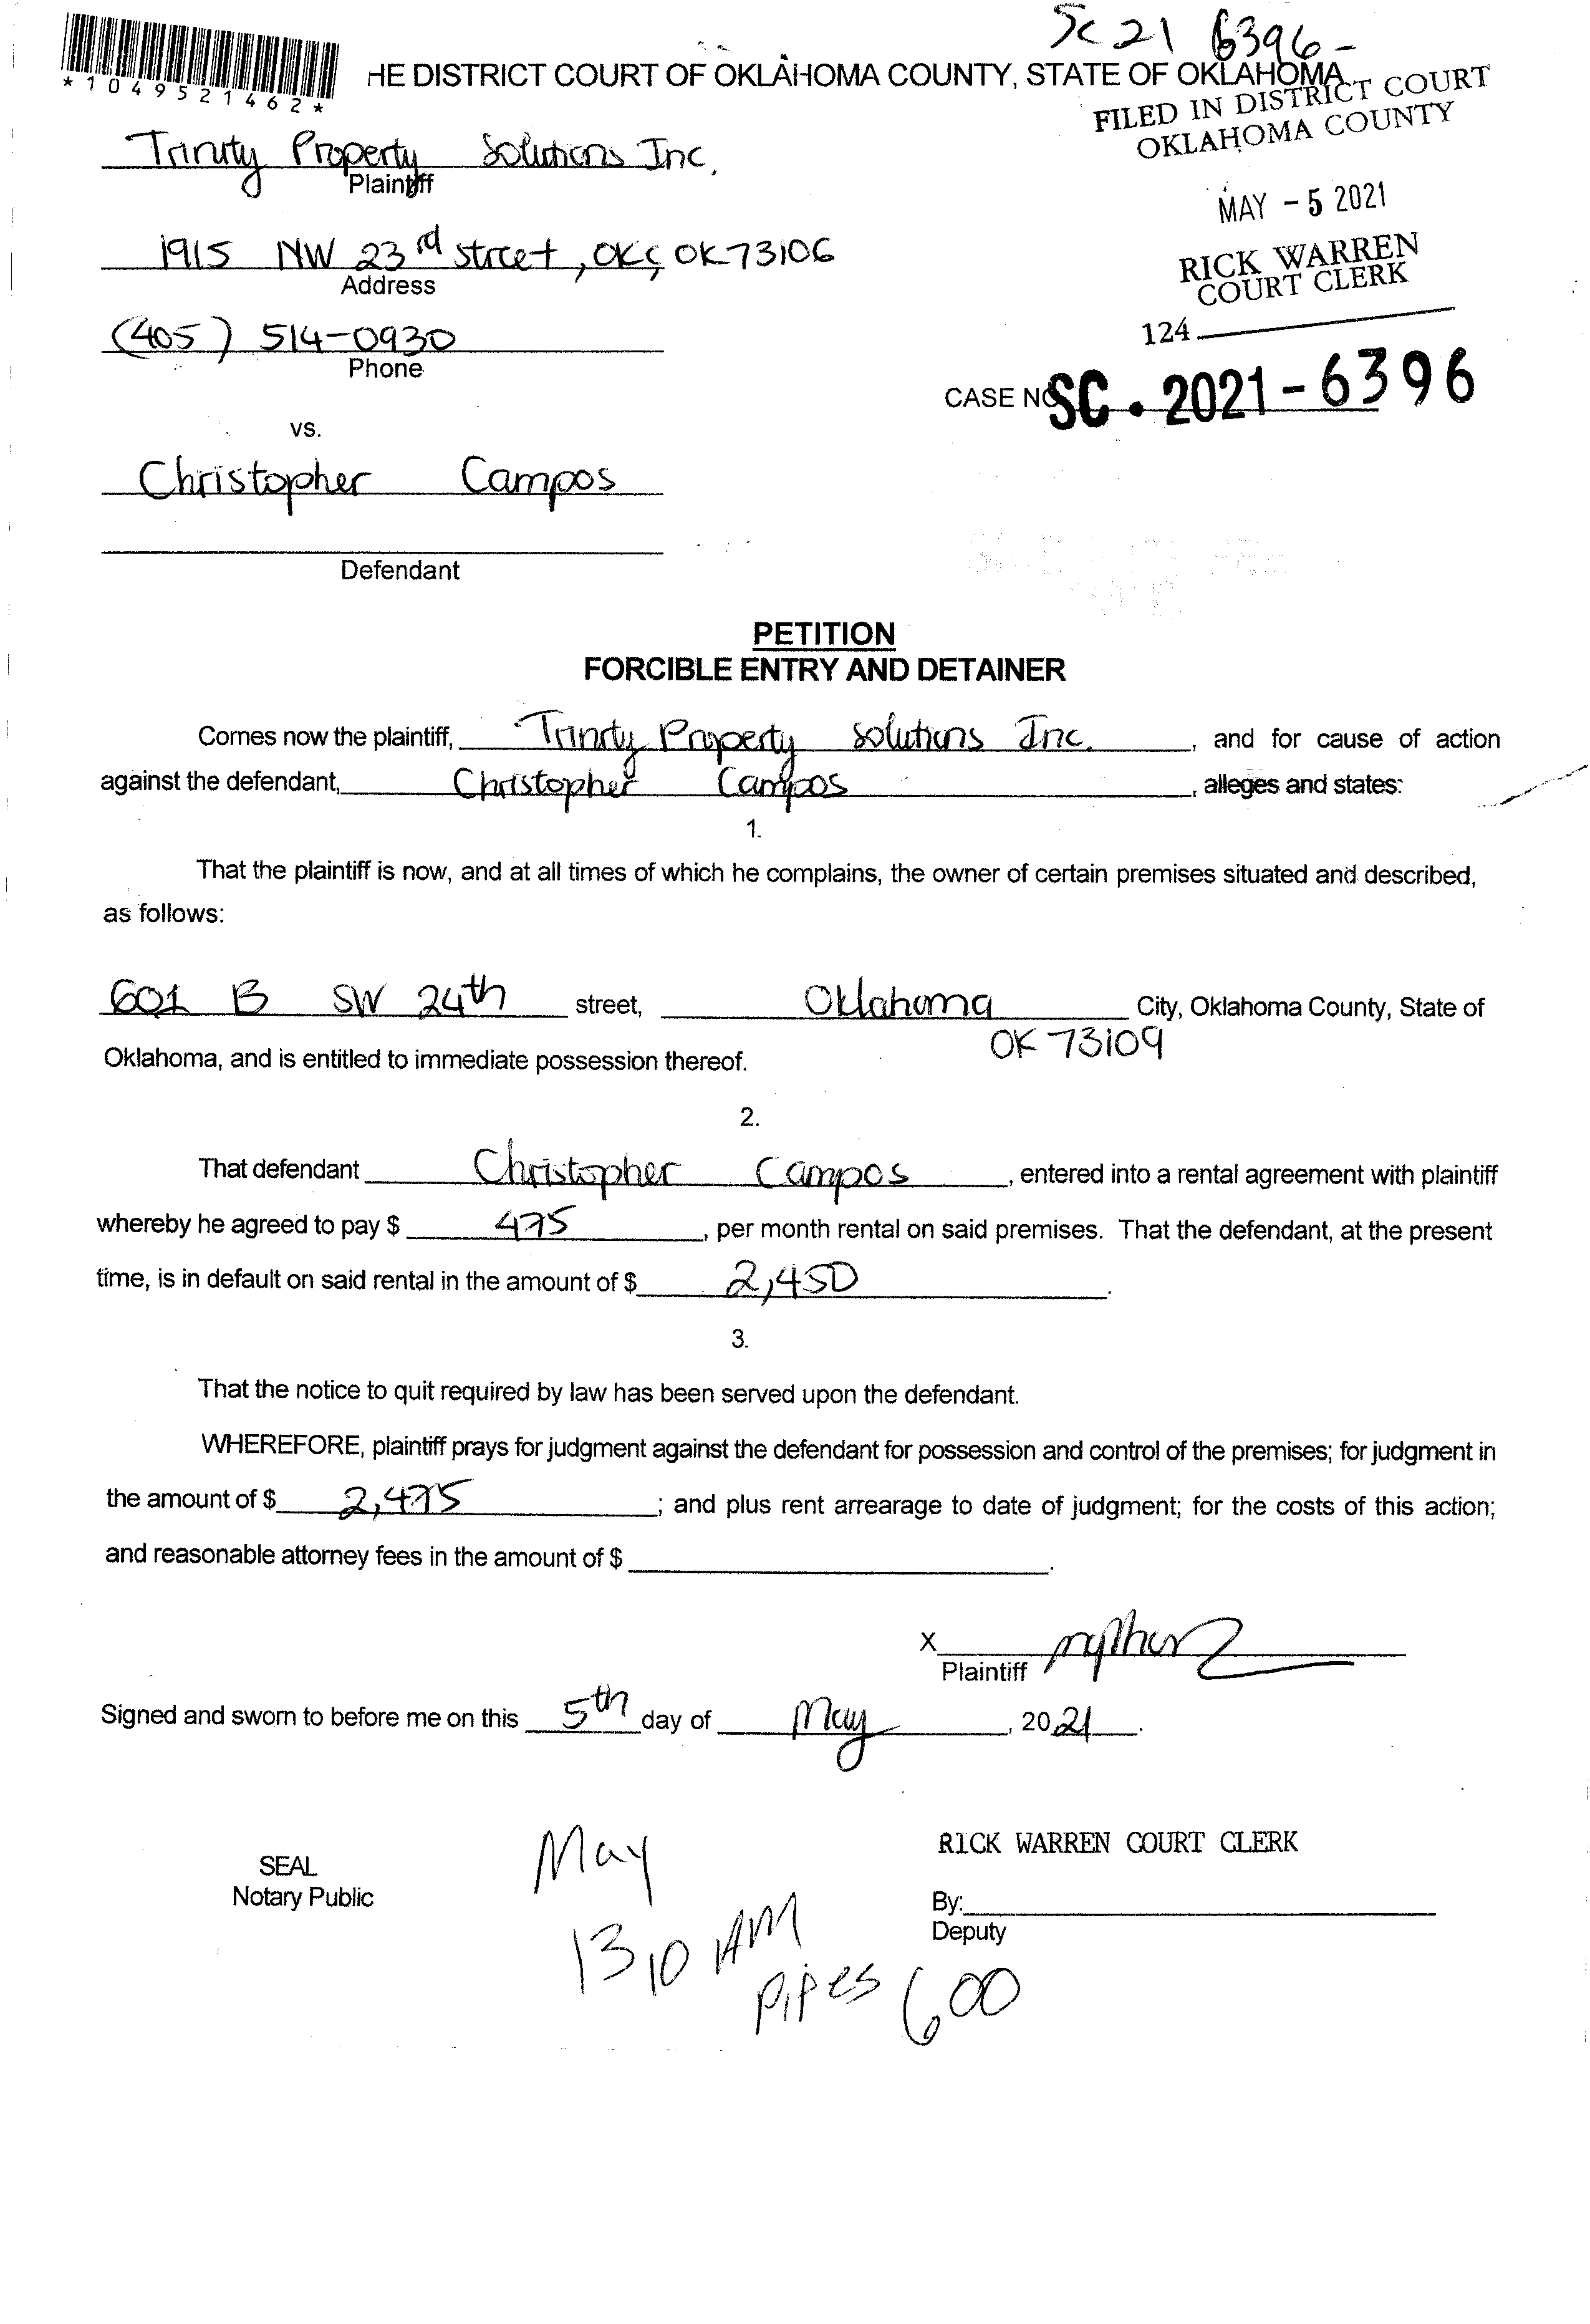 SC 21 6396-
HE DISTRICT COURT OF OKLAHOMA COUNTY, STATE OF OKLAHOMA
*1049521462*
FILED IN DISTRICT COURT
OKLAHOMA COUNTY
Trinity Property Solutions Inc.
Plaintiff
MAY - 5 2021
1915 NW 23rd Street, OKC, OK 73106
Address
RICK WARREN
COURT CLERK
(405) 514-0930
Phone
124
CASE NO SC. 2021-6396
vs.
Christopher Campos
Defendant
PETITION
FORCIBLE ENTRY AND DETAINER
Comes now the plaintiff, Trinity Property Solutions Inc. , and for cause of action
against the defendant, Christopher Campos , alleges and states:
1.
That the plaintiff is now, and at all times of which he complains, the owner of certain premises situated and described,
as follows:
601 B SW 24th street, Oklahoma City, Oklahoma County, State of
OK 73109
Oklahoma, and is entitled to immediate possession thereof.
2.
That defendant Christopher Campos , entered into a rental agreement with plaintiff
whereby he agreed to pay $ 475 , per month rental on said premises. That the defendant, at the present
time, is in default on said rental in the amount of $ 2,450 .
3.
That the notice to quit required by law has been served upon the defendant.
WHEREFORE, plaintiff prays for judgment against the defendant for possession and control of the premises; for judgment in
the amount of $ 2,475 ; and plus rent arrearage to date of judgment; for the costs of this action;
and reasonable attorney fees in the amount of $ .
X
Plaintiff
Signed and sworn to before me on this 5th day of May , 2021 .
RICK WARREN COURT CLERK
SEAL
Notary Public
May
13 10 AM
By:
Deputy
Pipes 600